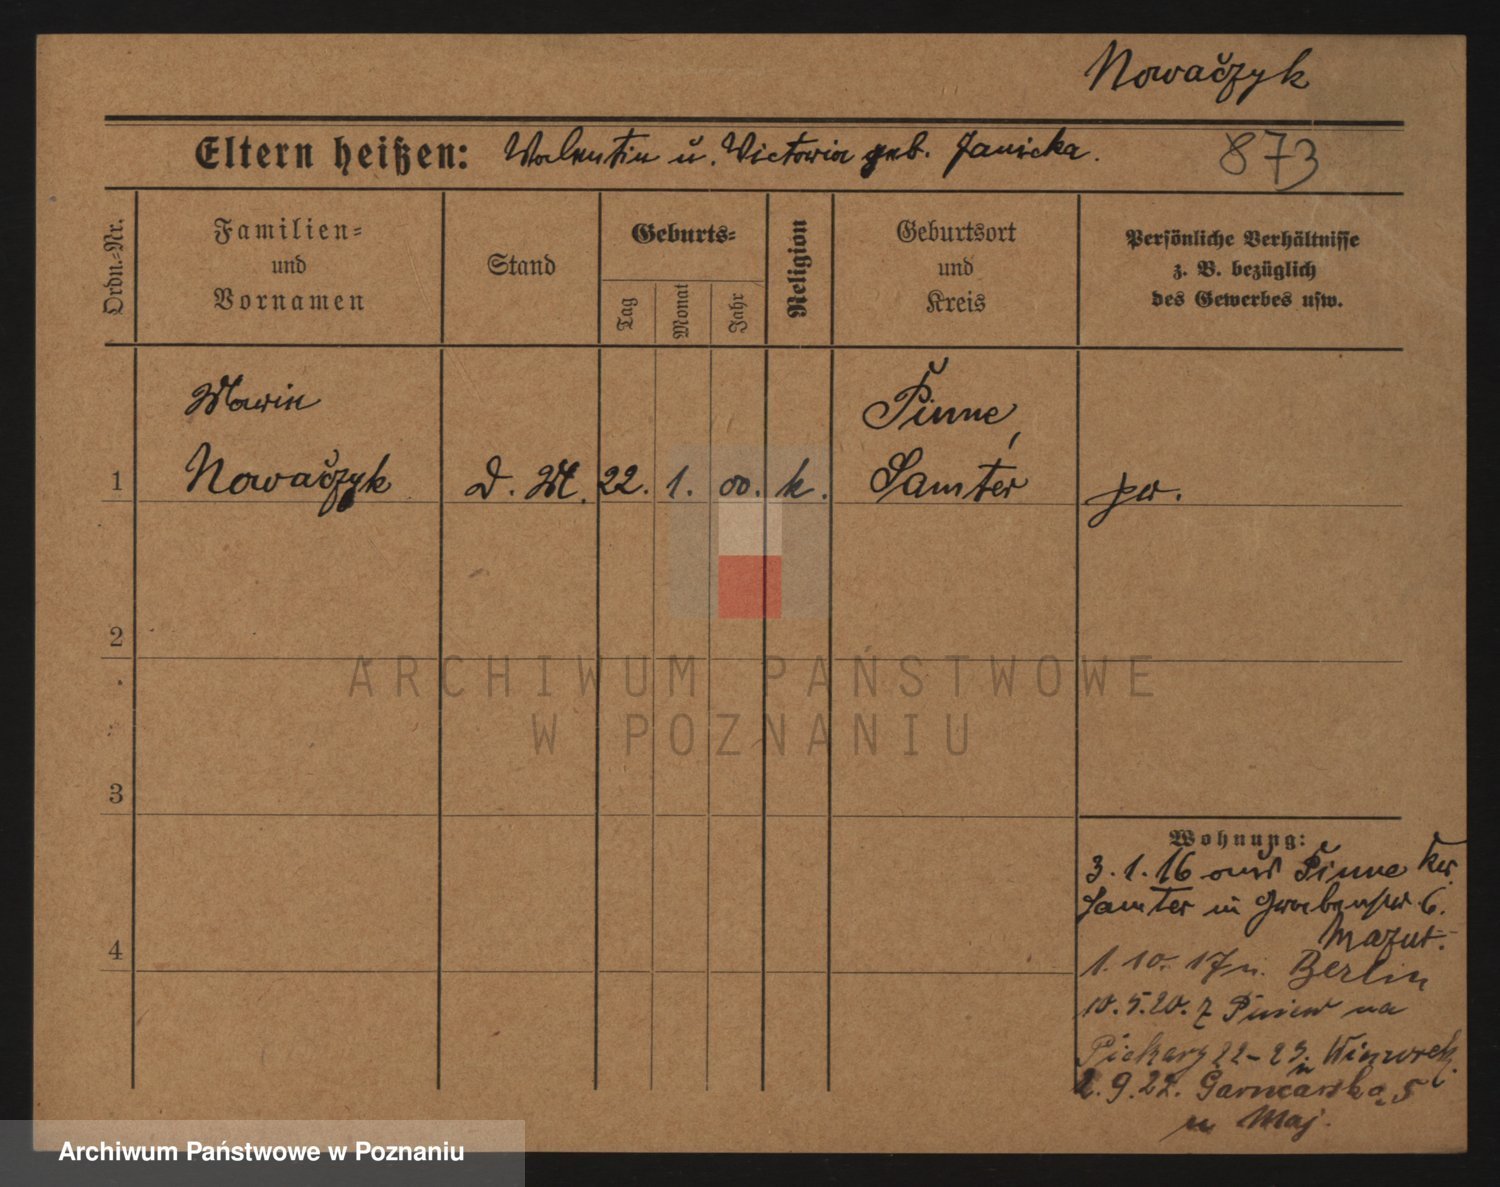 Nowaczyk
Eltern heißen: Valentin u. Victoria geb. Janicka.
873
Ordn.-Nr.
Familien-
und
Vornamen
Stand
Geburts-
Tag
Monat
Jahr
Religion
Geburtsort
und
Kreis
Persönliche Verhältnisse
z. B. bezüglich
des Gewerbes usw.
Pinne,
1 Nowaczyk D. M. 22. 1. 00. k. Samter
2
3
4
ARCHIWUM PAŃSTWOWE
W POZNANIU
Wohnung:
3.1.16 aus Pinne Kr.
Samter in 6.
1.10.17 n. Berlin
10.5.20. z Pniew na
Piekary 22-23.
2.9.22. Garncarska 5
u Maj.
Archiwum Państwowe w Poznaniu